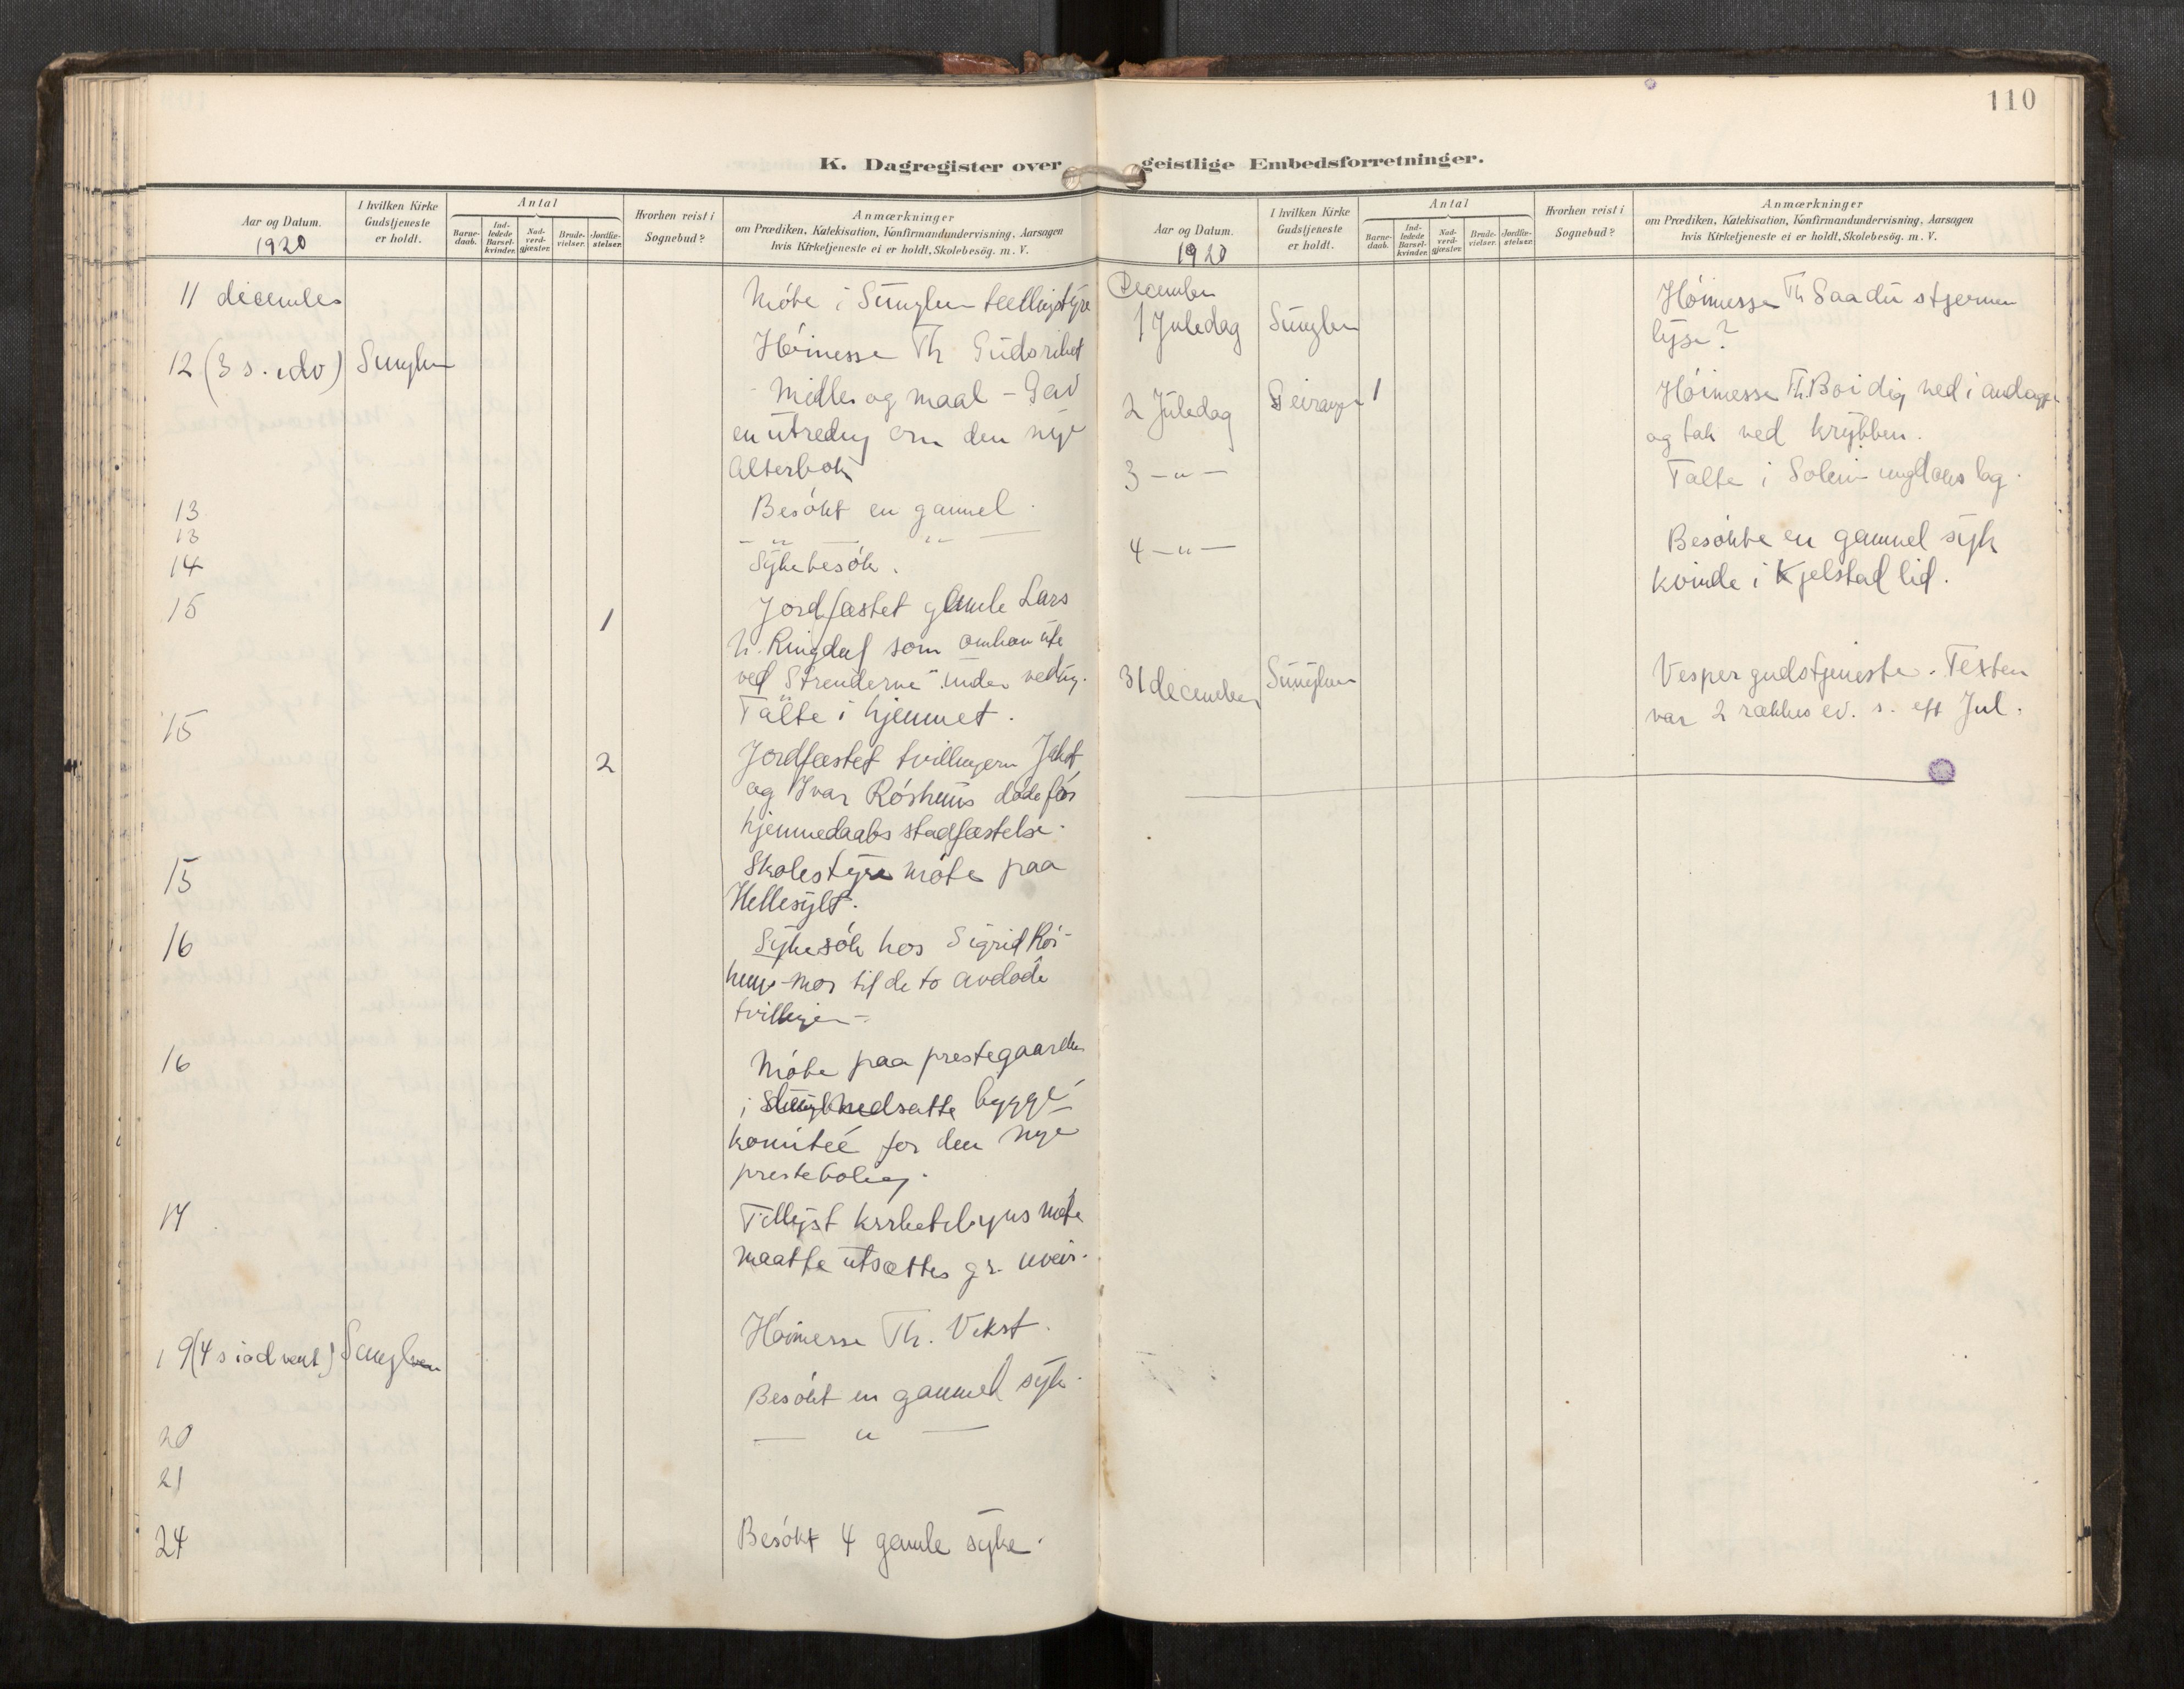 110
K. Dagregister over geistlige Embedsforretninger.
Aar og Datum.
1920
I hvilken Kirke
Gudstjeneste
er holdt.
Antal
Barne-
daab.
Ind-
ledede
Barsel-
kvinder.
Nad-
verd-
gjæster.
Brude-
vielser.
Jordfæ-
stelser.
Hvorhen reist i
Sognebud?
Anmærkninger
om Prædiken, Katekisation, Konfirmandundervisning, Aarsagen
hvis Kirketjeneste ei er holdt, Skolebesög. m. V.
11 december
Möte i Sunylven
12 (3 s. i adv) Sunylven
Höimesse Th Gudsriket
- Midler og maal - Gav
en utredning om den nye
Alterbok
13 Besökt en gammel
13 - " - " -
14 Sykebesök.
15 1 Jordfæstet gamle Lars
Ringdal som omkom ute
ved
Talte i hjemmet.
15 2 Jordfæstet tvillingern
og Ivar Röshaus döde för
hjemmedaabs stadfæstelse.
15 Skolestyre möte paa
Hellesylt.
16 Sykesök hos Sigrid Rös-
haug - mor til de to avdöde
tvillinger -
16 Möte paa prestegaarden
i nedsatte bygge-
komiteé for den nye
prestebolig.
17 Tillyst
maatte utsættes gr. uveir.
19 (4 s i advent) Sunylven Höimesse Th. Vekst.
Besökt en gammel syk.
20 - " -
21
24 Besökt 4 gamle syke.
Aar og Datum.
1920
I hvilken Kirke
Gudstjeneste
er holdt.
Antal
Barne-
daab.
Ind-
ledede
Barsel-
kvinder.
Nad-
verd-
gjæster.
Brude-
vielser.
Jordfæ-
stelser.
Hvorhen reist i
Sognebud?
Anmærkninger
om Prædiken, Katekisation, Konfirmandundervisning, Aarsagen
hvis Kirketjeneste ei er holdt, Skolebesög. m. V.
December
1 Juledag Sunylven Höimesse Th Saa du stjernen
lyse?
2 Juledag Geiranger 1 Höimesse Th. Böi dig ned i andagt
og tak ved krybben.
3 - " - Talte i lag.
4 - " - Besökte en gammel syk
kvinde i Kjelstadlid.
31 december Sunylven Vesper gudstjeneste. Texten
var 2 rækkes ev. s. eft Jul.